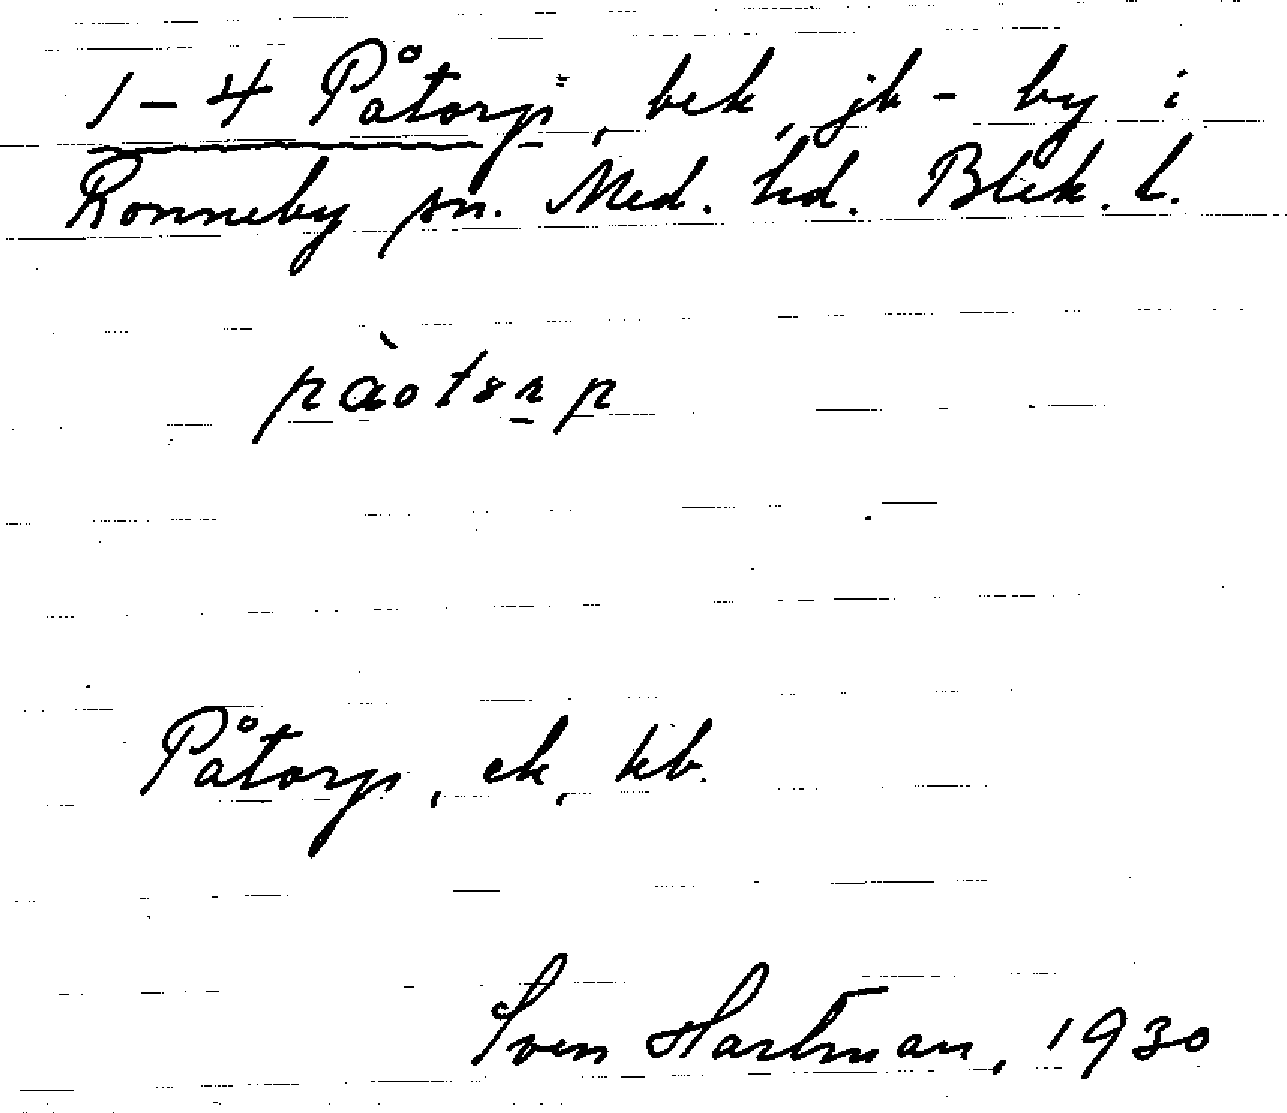 1-4 Påtorp, bek, jb-by i
Ronneby sn. Med. hd. Blek. l.
Påtorp, ek, kb.
Sven Hartman, 1930